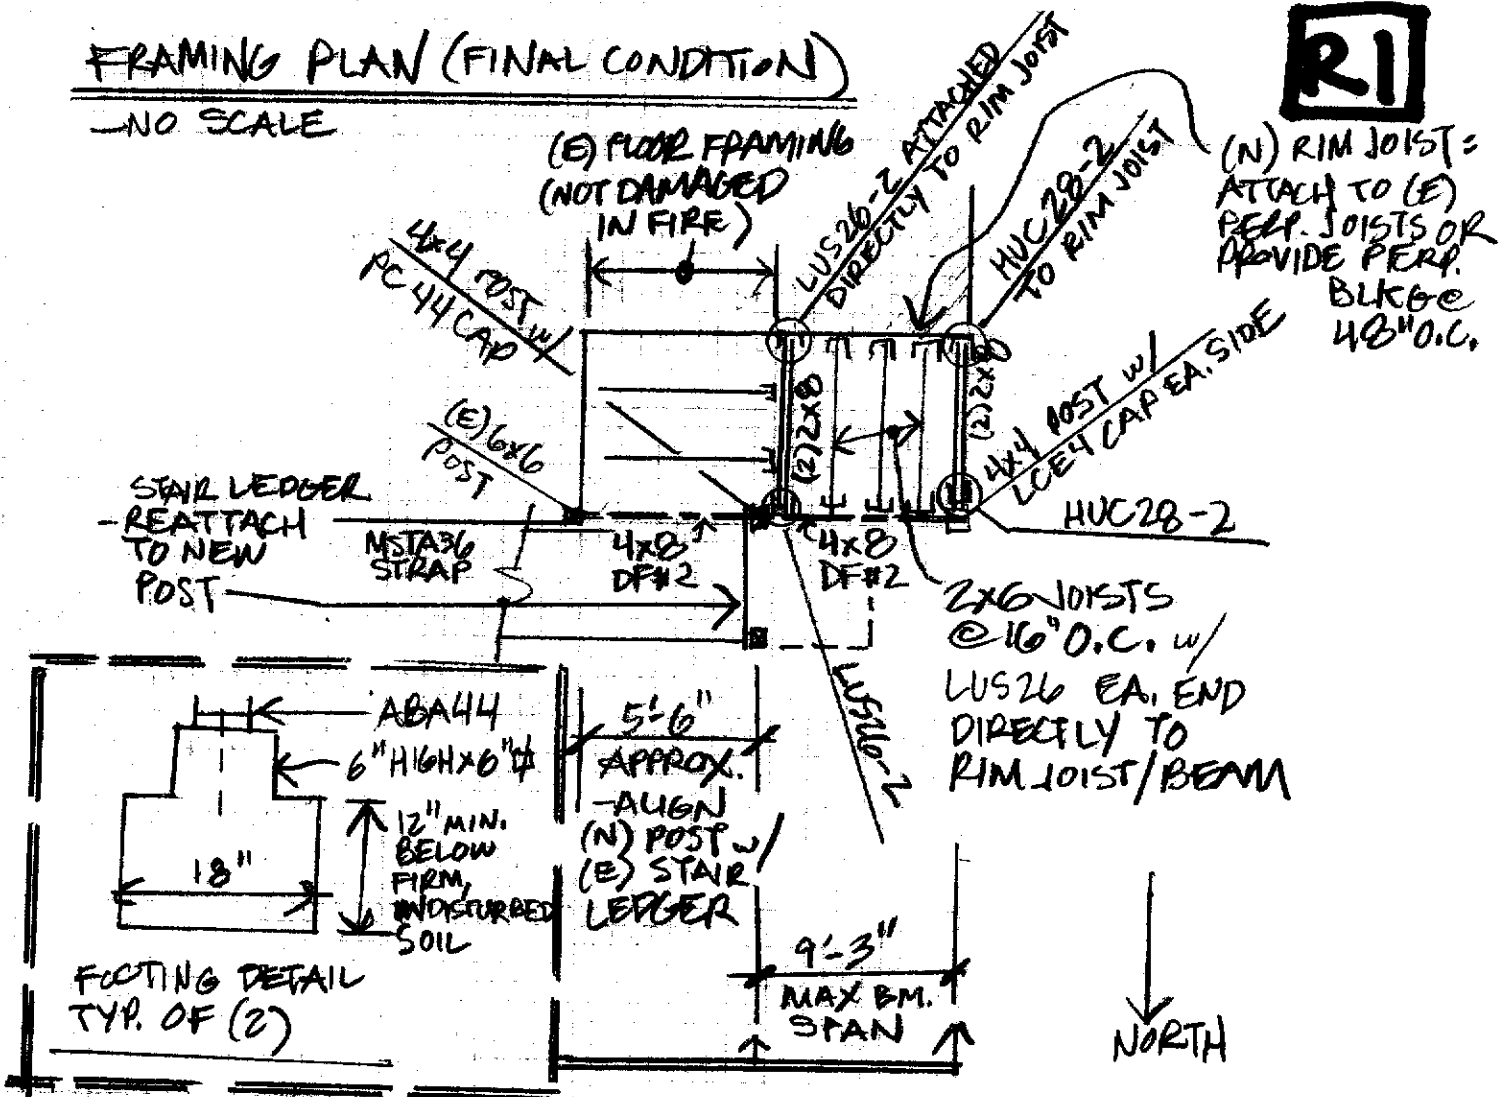 FRAMING PLAN (FINAL CONDITION)
-NO SCALE
R1
(E) FLOOR FRAMING
(NOT DAMAGED
IN FIRE)
LUS26-2 ATTACHED
DIRECTLY TO RIM JOIST
HUC28-2
TO RIM JOIST
(N) RIM JOIST:
ATTACH TO (E)
PERP. JOISTS OR
PROVIDE PERP.
BLKG @
48" O.C.
4x4 POST w/
PC44 CAP
(E) 6x6
POST
(2) 2x8
(2) 2x8
4x4 POST w/
LCE4 CAP EA. SIDE
HUC28-2
STAIR LEDGER
-REATTACH
TO NEW
POST
MSTA36
STRAP
4x8
DF#2
4x8
DF#2
2x6 JOISTS
@ 16" O.C. w/
LUS26 EA. END
DIRECTLY TO
RIM JOIST/BEAM
LUS26-2
ABA44
6" HIGH x 6"
12" MIN.
BELOW
FIRM,
UNDISTURBED
SOIL
18"
FOOTING DETAIL
TYP. OF (2)
5'-6"
APPROX.
-ALIGN
(N) POST w/
(E) STAIR
LEDGER
9'-3"
MAX BM.
SPAN
NORTH